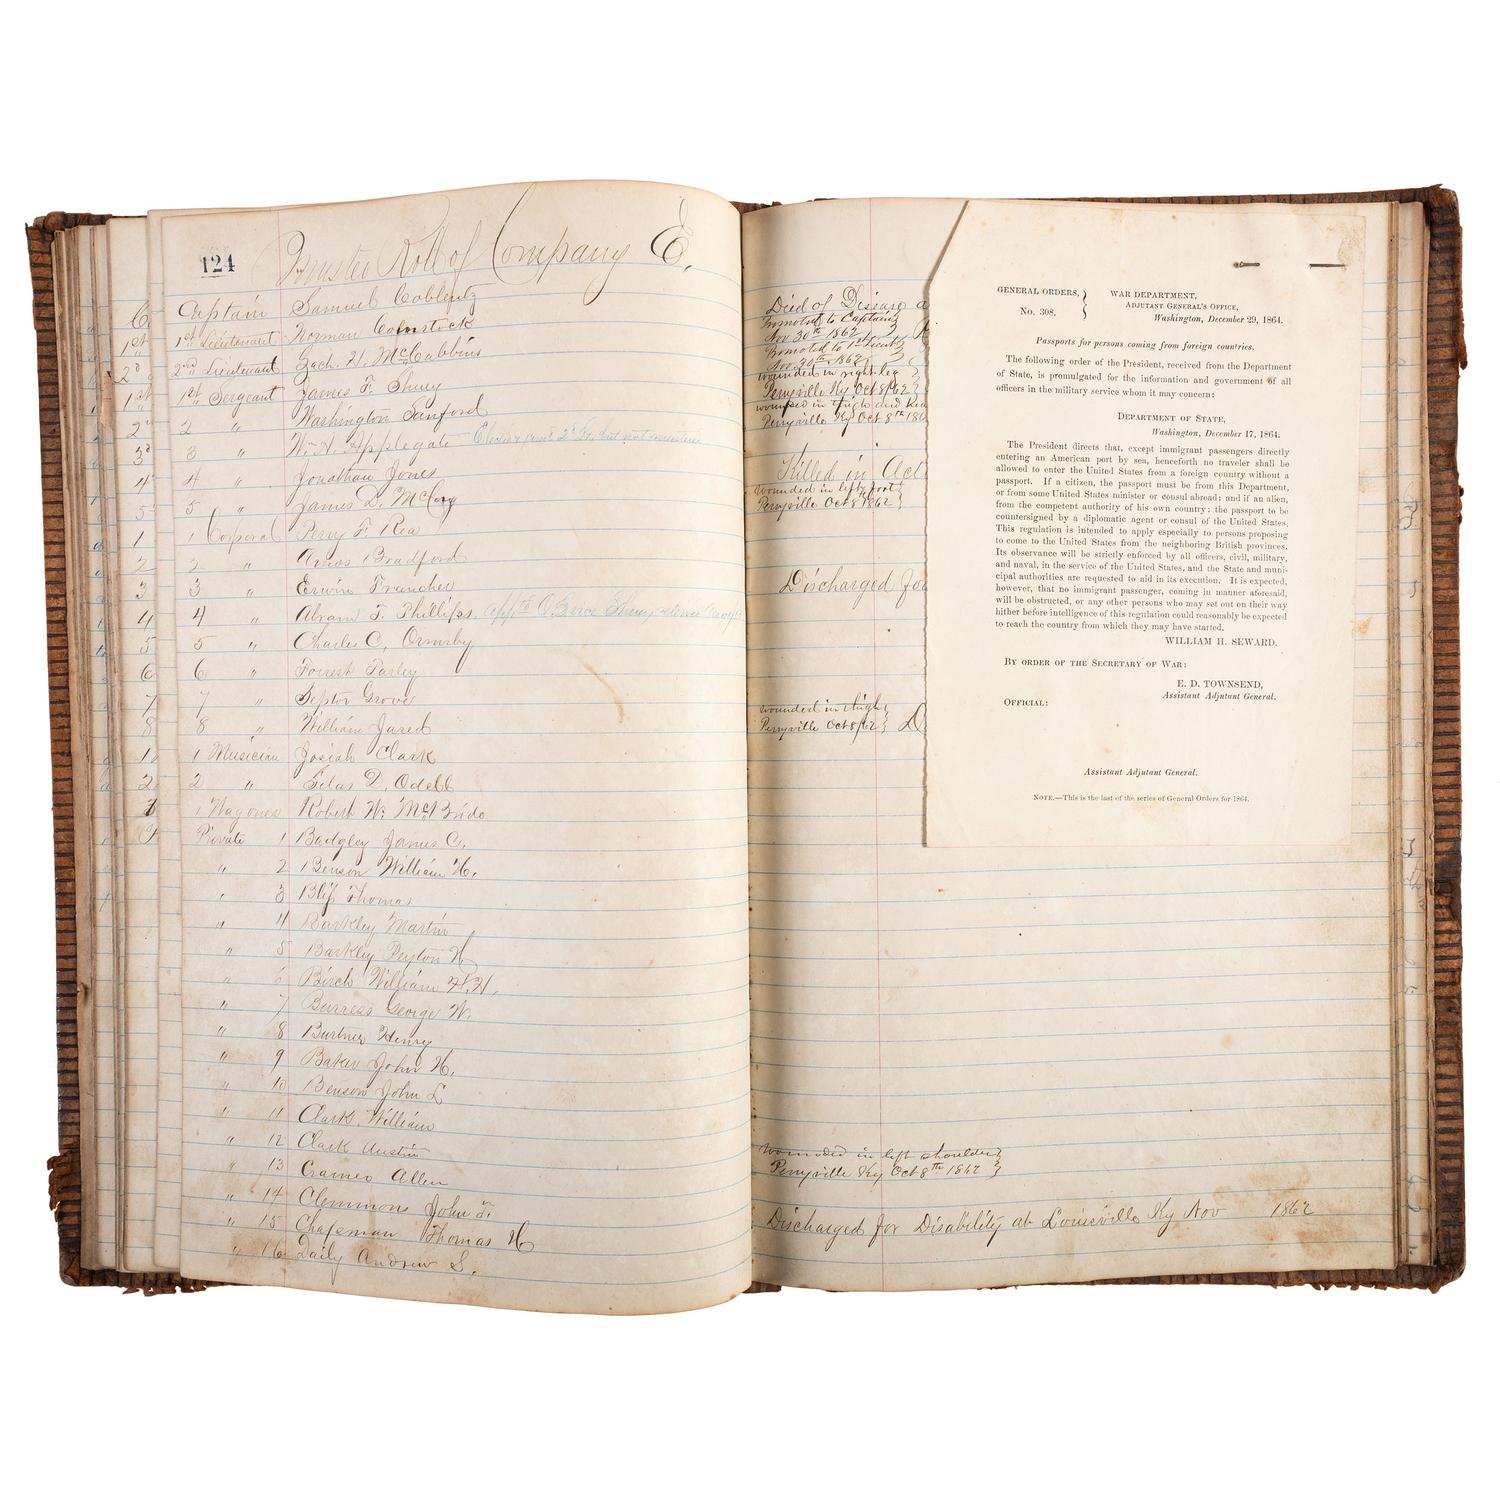 124
Muster Roll of Company E.
Captain Samuel Coblentz
1st Lieutenant Norman Comstock
2nd Lieutenant Zach. H. McCubbins
1st Sergeant James F. Shuey
2 " Washington Sanford
3 " W. H. Applegate
4 " Jonathan Jones
5 " James D. McCoy
1 Corporal Perry F. Rea
2 " Amos Bradford
3 " Erwin
4 " Abram F. Phillips
5 " Charles C. Ormsby
6 " Forrest Farley
7 " Grove
8 " William Jared
1 Musician Josiah Clark
2 " Silas D. Odell
1 Wagoner Robert W. McBride
Private 1 Badgley James C.
" 2 Benson William H.
" 3 Thomas
" 4 Barkley Martin
" 5 Barkley Peyton H
" 6 Birch William H.H.
" 7 Burress George W.
" 8 Burtner Henry
" 9 Baker John H.
" 10 Benson John L
" 11 Clark William
" 12 Clark Austin
" 13 Cramer Allen
" 14 Clemmons John F.
" 15 Chapman Thomas H
" 16 Daily Andrew S.
Died of Disease a
Promoted to Captain
Nov 30th 1862
Promoted to 1st Lieut
Nov. 30th, 1862
wounded in right leg
Perryville Ky. Oct 8/62
wounded in thigh and
Perryville Ky Oct 8th 186
Killed in Act
wounded in left foot
Perryville Oct 8 1862
Discharged for
wounded in thigh
Perryville Oct 8/62 D
wounded in left shoulder
Perryville Ky Oct 8th 1862
Discharged for Disability at Louisville Ky Nov 1862
GENERAL ORDERS,
No. 308.
WAR DEPARTMENT,
ADJUTANT GENERAL'S OFFICE,
Washington, December 29, 1864.
Passports for persons coming from foreign countries.
The following order of the President, received from the Department
of State, is promulgated for the information and government of all
officers in the military service whom it may concern:
DEPARTMENT OF STATE,
Washington, December 17, 1864.
The President directs that, except immigrant passengers directly
entering an American port by sea, henceforth no traveler shall be
allowed to enter the United States from a foreign country without a
passport. If a citizen, the passport must be from this Department,
or from some United States minister or consul abroad; and if an alien,
from the competent authority of his own country: the passport to be
countersigned by a diplomatic agent or consul of the United States.
This regulation is intended to apply especially to persons proposing
to come to the United States from the neighboring British provinces.
Its observance will be strictly enforced by all officers, civil, military,
and naval, in the service of the United States, and the State and muni-
cipal authorities are requested to aid in its execution. It is expected,
however, that no immigrant passenger, coming in manner aforesaid,
will be obstructed, or any other persons who may set out on their way
hither before intelligence of this regulation could reasonably be expected
to reach the country from which they may have started.
WILLIAM H. SEWARD.
BY ORDER OF THE SECRETARY OF WAR:
E. D. TOWNSEND,
Assistant Adjutant General.
OFFICIAL:
Assistant Adjutant General.
NOTE.—This is the last of the series of General Orders for 1864.